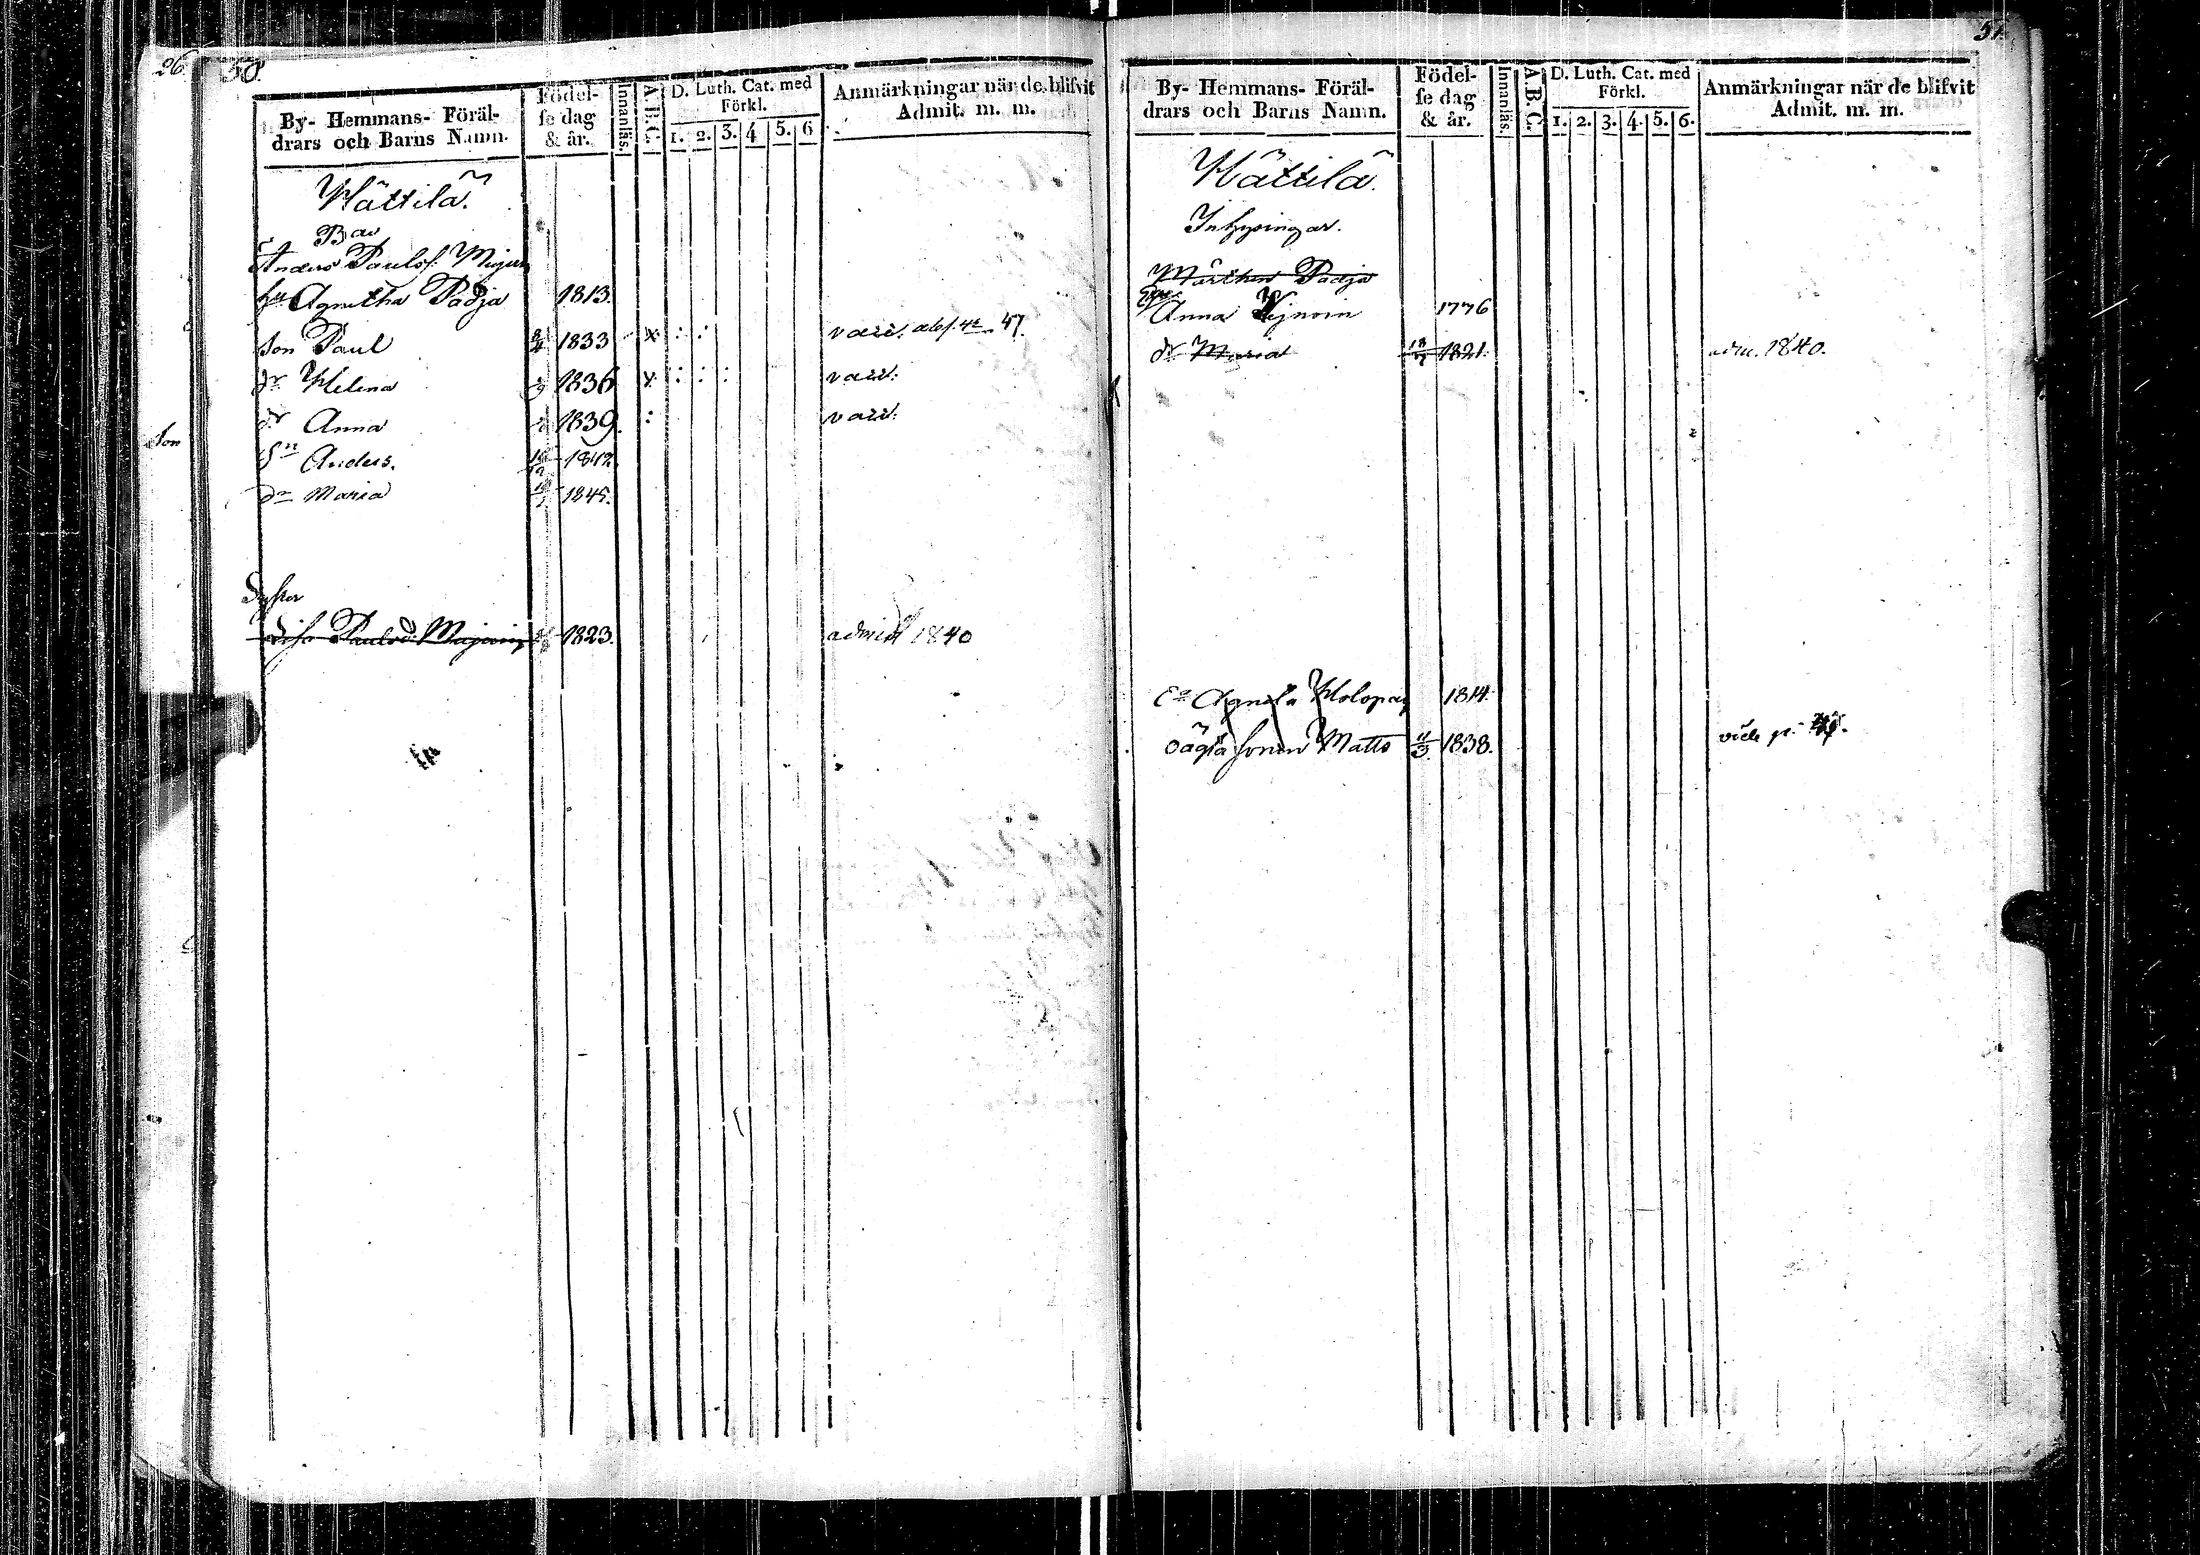 26
50
By- Hemmans- Föräl-
drars och Barns Namn.
Födel-
se dag
& år.
Innanläs.
A.B.C.
D. Luth. Cat. med
Förkl.
1. 2. 3. 4 5. 6
Anmärkningar när de blifvit
Admit. m. m.
Hättilä.
Anders Paulss.
hu Agnetha Padja 1813.
Son Paul 1833
dr Helena 1836
dr Anna 1839.
Sn Anders. 1842.
dr Maria 1845.
Son
Syster
Paulsd. 1823. admitt 1840
51.
By- Hemmans- Föräl-
drars och Barns Namn.
Födel-
se dag
& år.
Innanläs.
A.B.C.
D. Luth. Cat. med
Förkl.
1. 2. 3. 4. 5. 6.
Anmärkningar när de blifvit
Admit. m. m.
Hättilä.
Inhysingar.
Mårthen Padja
Anna 1776
dr Maria 1821. adm. 1840.
Agneta Holopa 1814.
oägta sonen Matts 11/3. 1838. vide p.